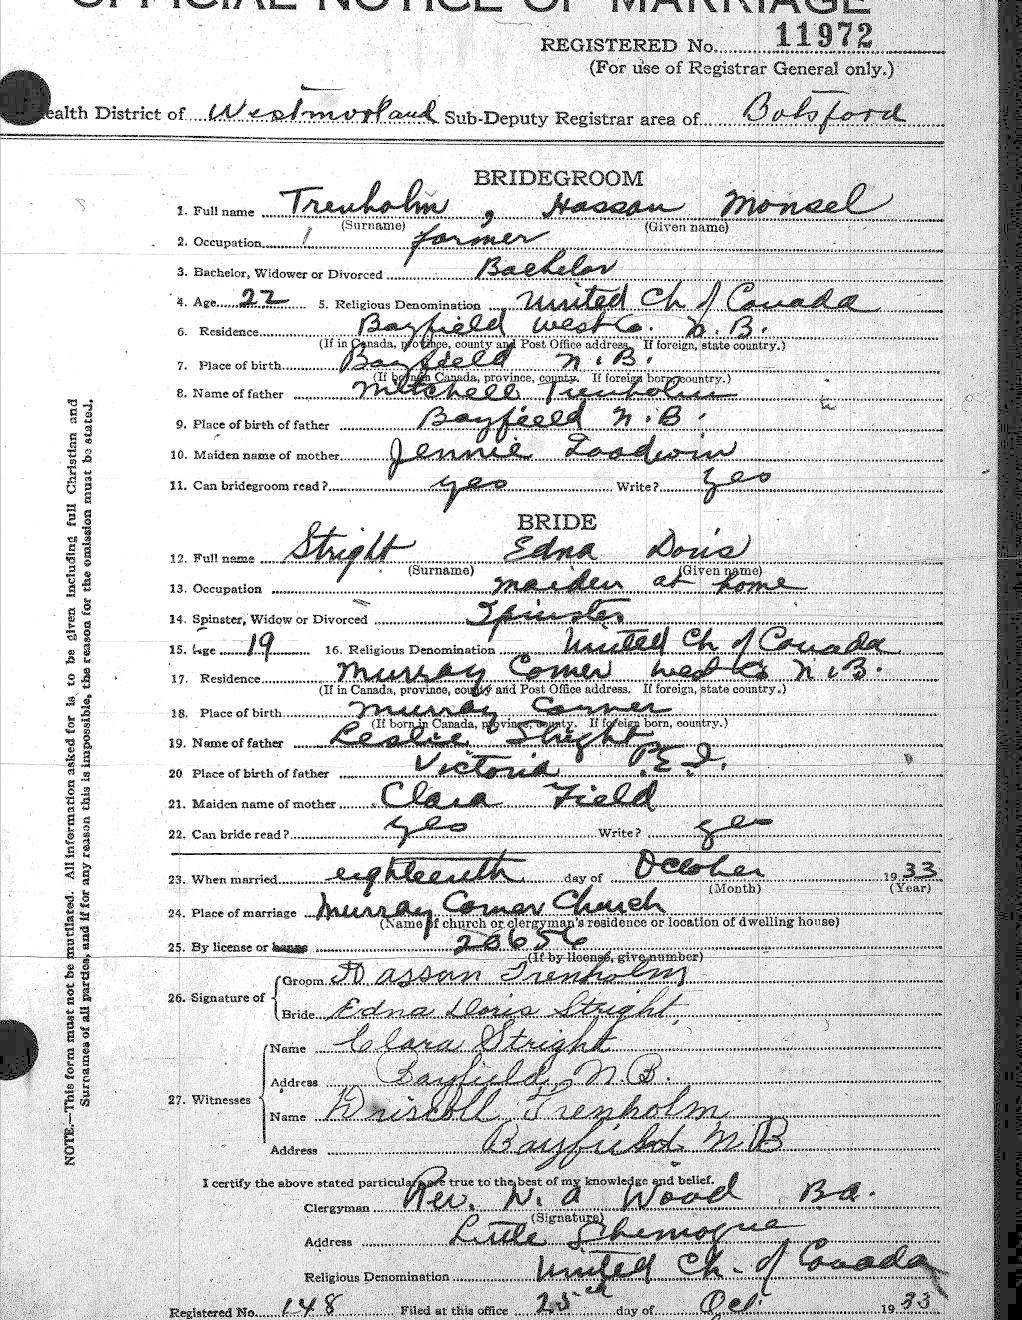 OFFICIAL NOTICE OF MARRIAGE
REGISTERED No. 11972
(For use of Registrar General only.)
ealth District of Westmorland Sub-Deputy Registrar area of Botsford
BRIDEGROOM
1. Full name Trenholm, Hassan Monsel
(Surname) (Given name)
2. Occupation farmer
3. Bachelor, Widower or Divorced Bachelor
4. Age 22 5. Religious Denomination United Ch of Canada
6. Residence Bayfield West Co. N.B.
(If in Canada, province, county and Post Office address. If foreign, state country.)
7. Place of birth Bayfield N.B.
(If born in Canada, province, county. If foreign born, country.)
8. Name of father Mitchell Trenholm
9. Place of birth of father Bayfield N.B.
10. Maiden name of mother Jennie Goodwin
11. Can bridegroom read? yes Write? yes
BRIDE
12. Full name Stright Edna Doris
(Surname) (Given name)
13. Occupation maiden at home
14. Spinster, Widow or Divorced Spinster
15. Age 19 16. Religious Denomination United Ch of Canada
17. Residence Murray Corner West Co N.B.
(If in Canada, province, county and Post Office address. If foreign, state country.)
18. Place of birth Murray Corner
(If born in Canada, province, county. If foreign born, country.)
19. Name of father Leslie Stright
20 Place of birth of father Victoria P.E.I.
21. Maiden name of mother Clara Field
22. Can bride read? yes Write? yes
23. When married eighteenth day of October 1933
(Month) (Year)
24. Place of marriage Murray Corner Church
(Name of church or clergyman's residence or location of dwelling house)
25. By license or banns 20656
(If by license, give number)
26. Signature of
Groom Hassan Trenholm
Bride Edna Doris Stright
27. Witnesses
Name Clara Stright
Address Bayfield, N.B.
Name Driscoll Trenholm
Address Bayfield N.B
I certify the above stated particulars are true to the best of my knowledge and belief.
Clergyman Rev. W. A Wood B.A.
(Signature)
Address Little Shemogue
Religious Denomination United Ch. of Canada
Registered No. 148 Filed at this office 25th day of Oct. 1933
NOTE.—This form must not be mutilated. All information asked for is to be given including full Christian and
Surnames of all parties, and if for any reason this is impossible, the reason for the omission must be stated.